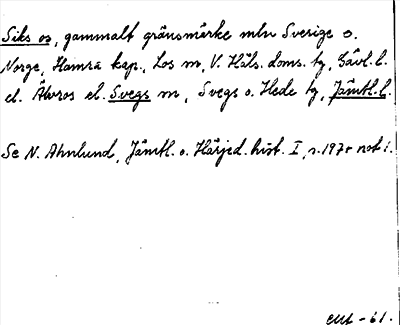 Siks os, gammalt gränsmärke mln Sverige o.
Norge, Hamra kap., Los sn, V. Häls. doms. tg, Gävl. l.
el. Älvros el. Svegs sn, Svegs o. Hede tg, Jämtl. l.
Se N. Ahnlund, Jämtl. o. Härjed. hist. I, s. 197 not 1.
-61.